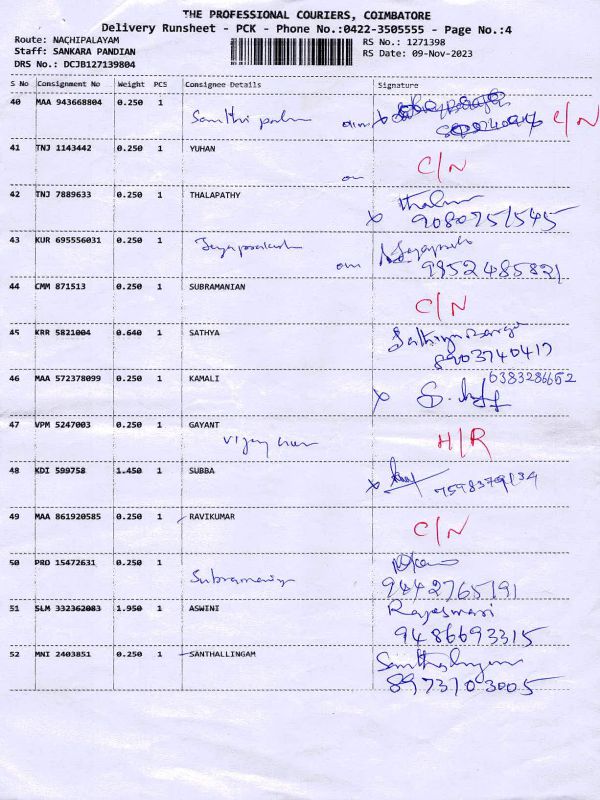 THE PROFESSIONAL COURIERS, COIMBATORE
Delivery Runsheet - PCK - Phone No.:0422-3505555 - Page No.:4
Route: NACHIPALAYAM RS No.: 1271398
Staff: SANKARA PANDIAN RS Date: 09-Nov-2023
DRS No.: DCJB127139804
S No Consignment No Weight PCS Consignee Details Signature
40 MAA 943668804 0.250 1 C/N
41 TNJ 1143442 0.250 1 YUHAN C/N
42 TNJ 7889633 0.250 1 THALAPATHY
x 9080751545
43 KUR 695556031 0.250 1
9952485821
44 CMM 871513 0.250 1 SUBRAMANIAN C/N
45 KRR 5821004 0.640 1 SATHYA
8903740417
46 MAA 572378099 0.250 1 KAMALI 6383286652
x
47 VPM 5247003 0.250 1 GAYANT H/R
48 KDI 599758 1.450 1 SUBBA
x
49 MAA 861920585 0.250 1 RAVIKUMAR C/N
50 PRO 15472631 0.250 1
9442765191
51 SLM 332362083 1.950 1 ASWINI
9486693315
52 MNI 2403851 0.250 1 SANTHALLINGAM
8973103005